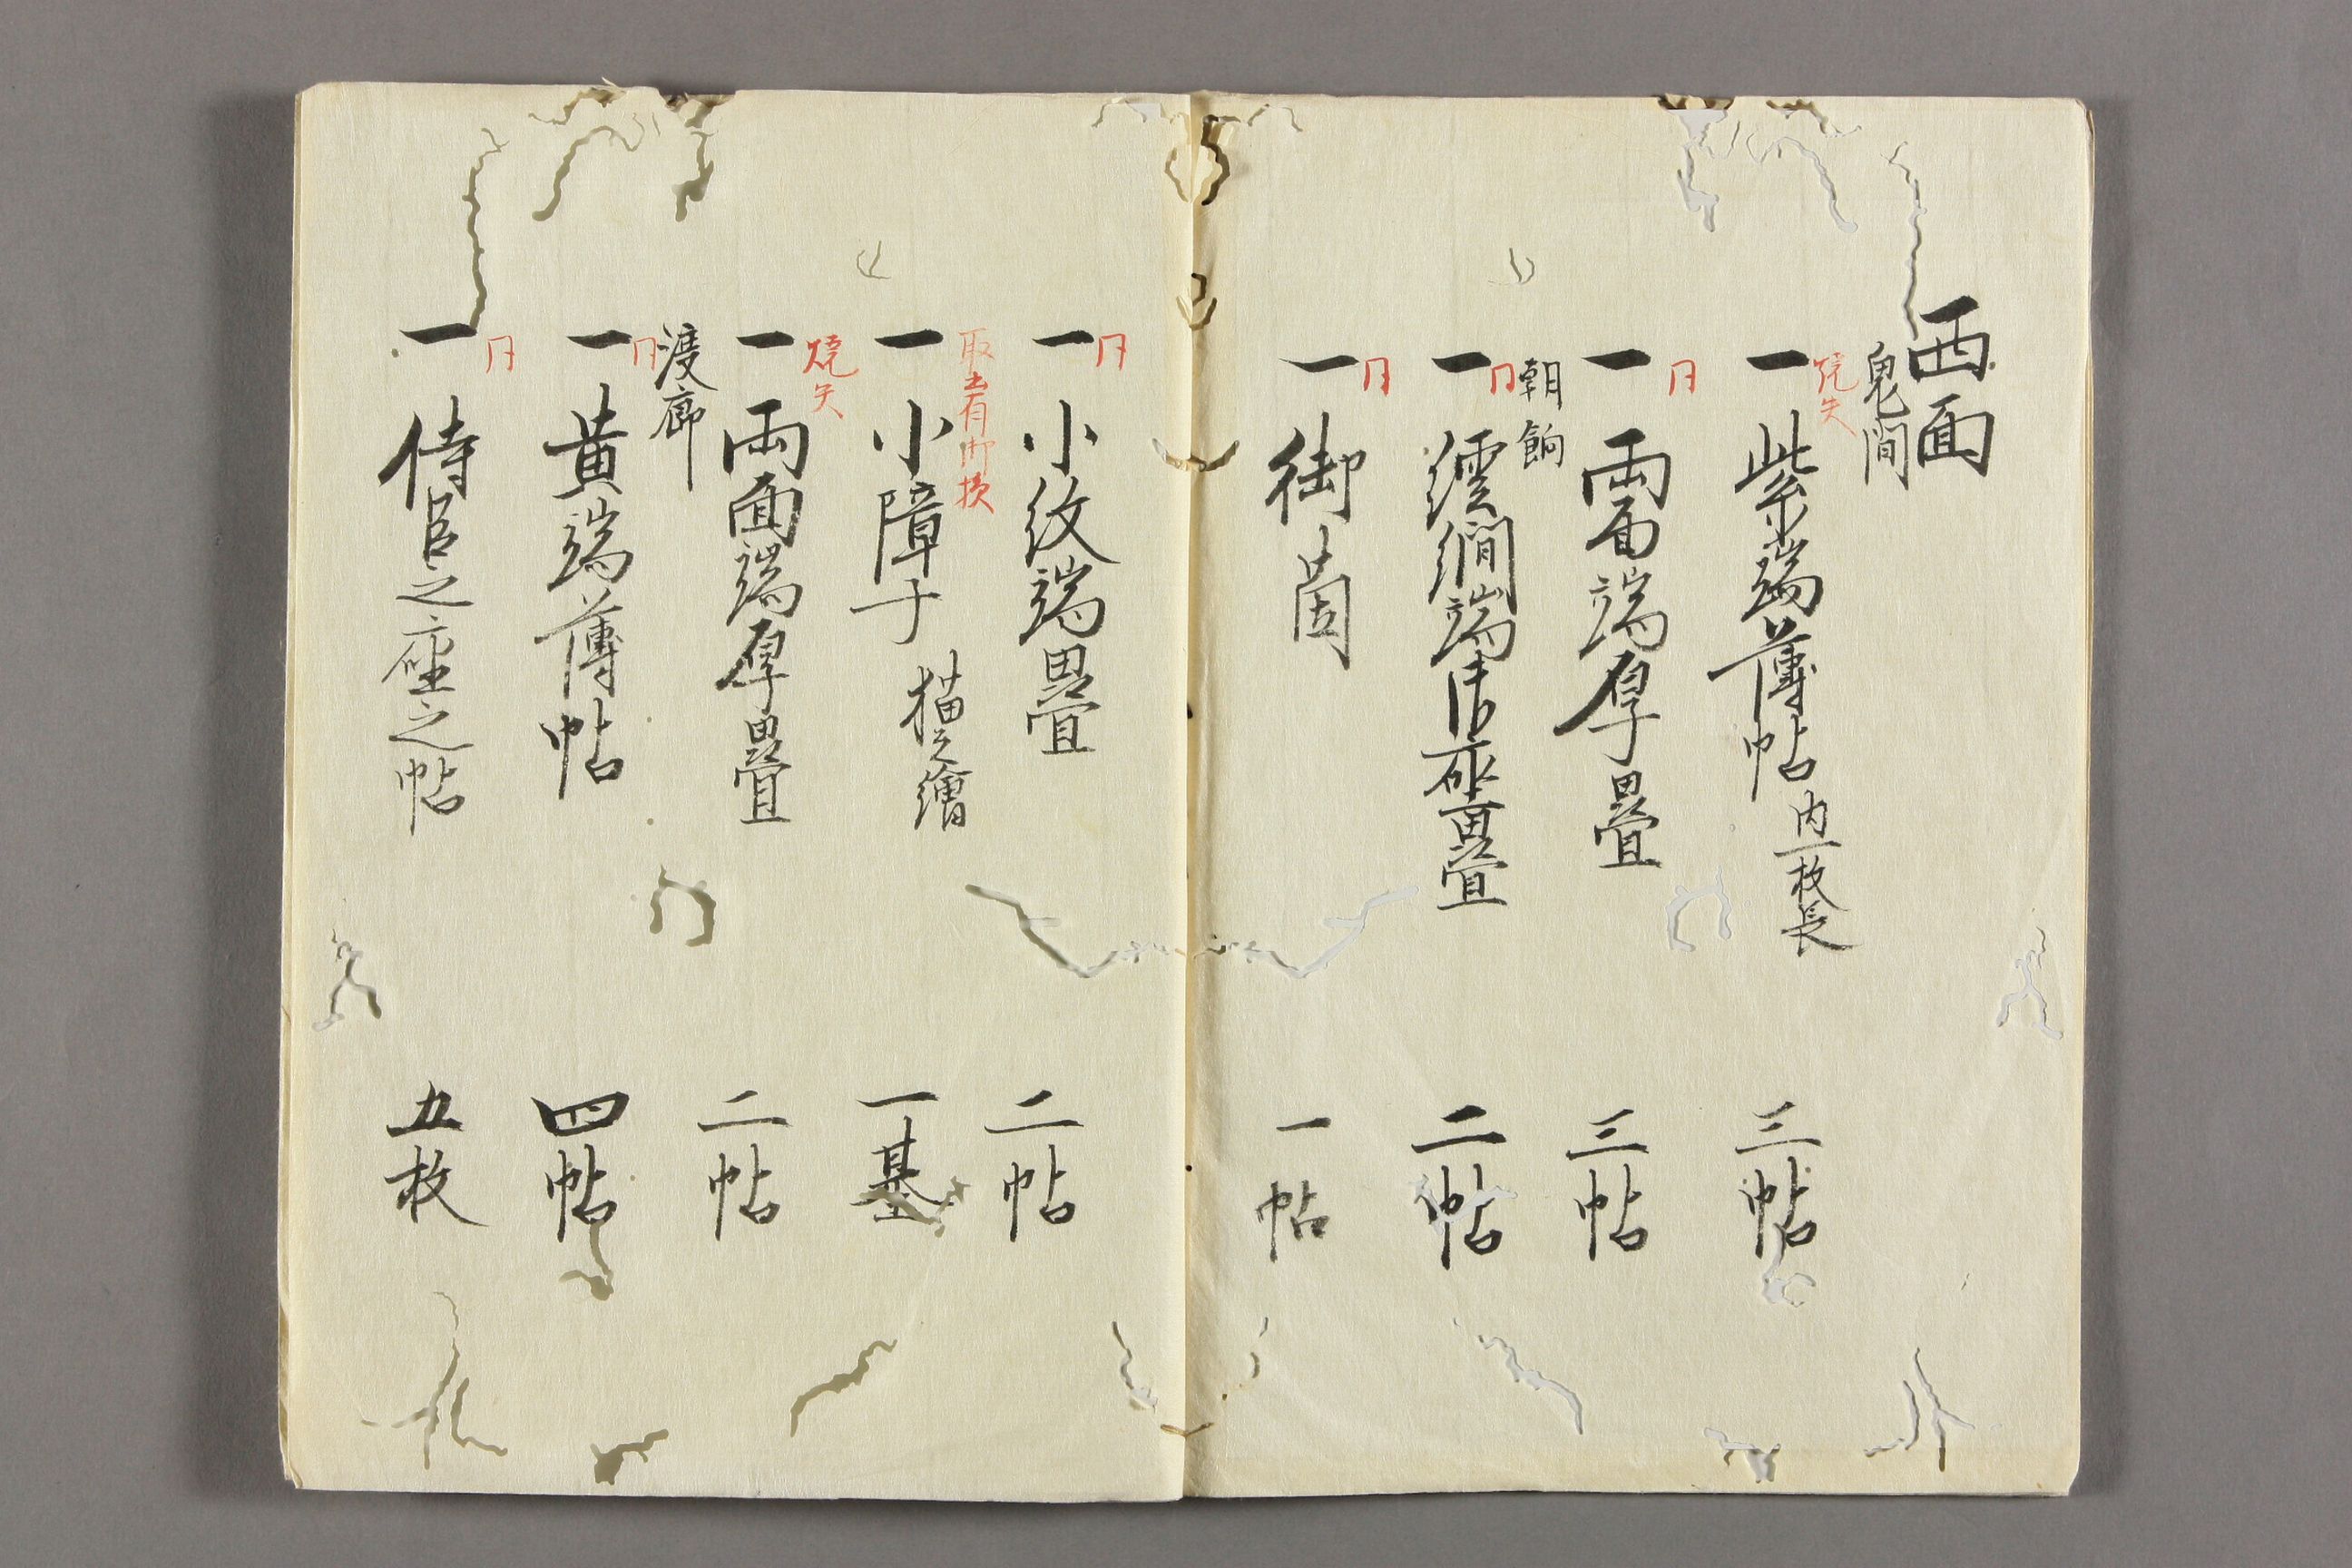 西面
鬼間
焼失
一 紫端薄帖 内一枚長 三帖
同
一 両面端厚畳 三帖
朝餉
同
一 繧繝端御座畳 二帖
同
一 御茵 一帖
同
一 小紋端畳 二帖
取出有所損
一 小障子 猫之繪 一基
焼失
一 両面端厚畳 二帖
渡廊
同
一 黄端薄帖 四帖
同
一 侍臣之座之帖 五枚